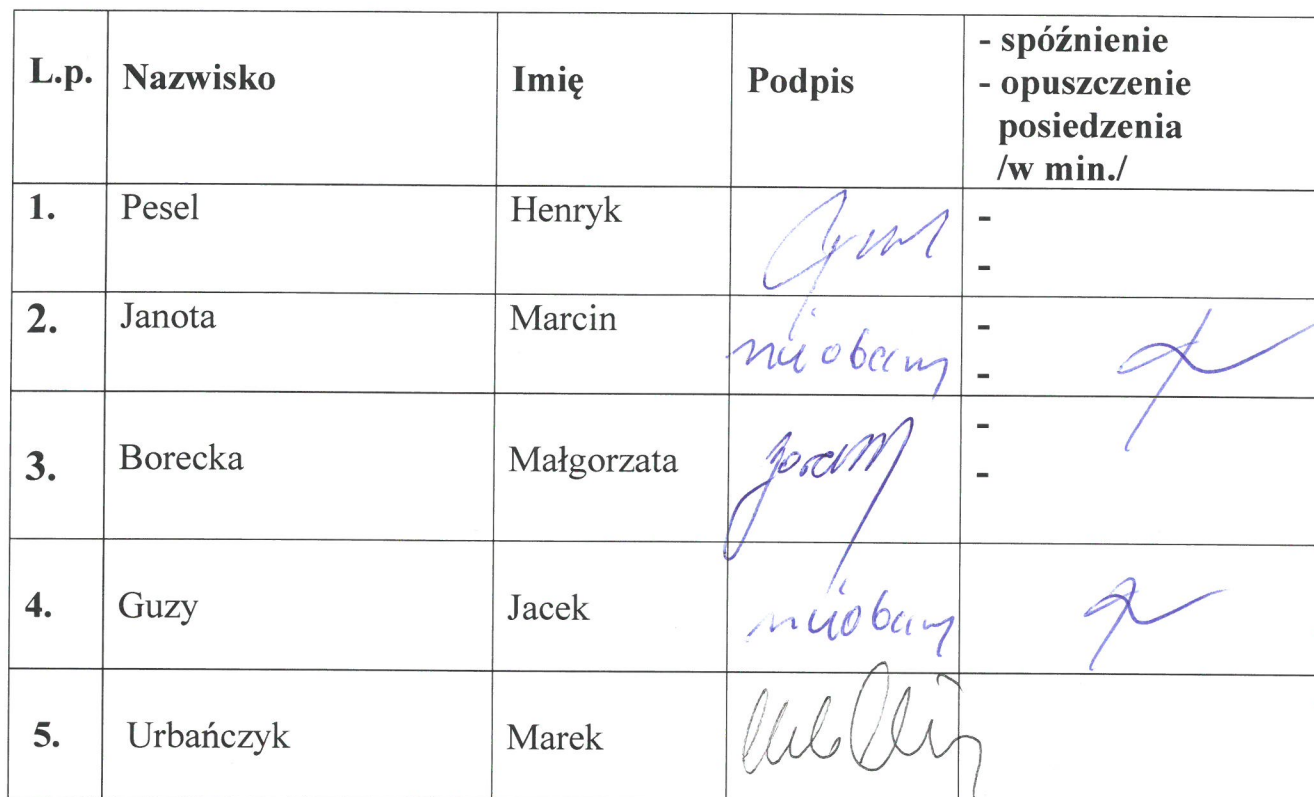 L.p. Nazwisko Imię Podpis - spóźnienie
- opuszczenie
posiedzenia
/w min./
1. Pesel Henryk -
-
2. Janota Marcin nieobecny -
-
3. Borecka Małgorzata -
-
4. Guzy Jacek nieobecny
5. Urbańczyk Marek